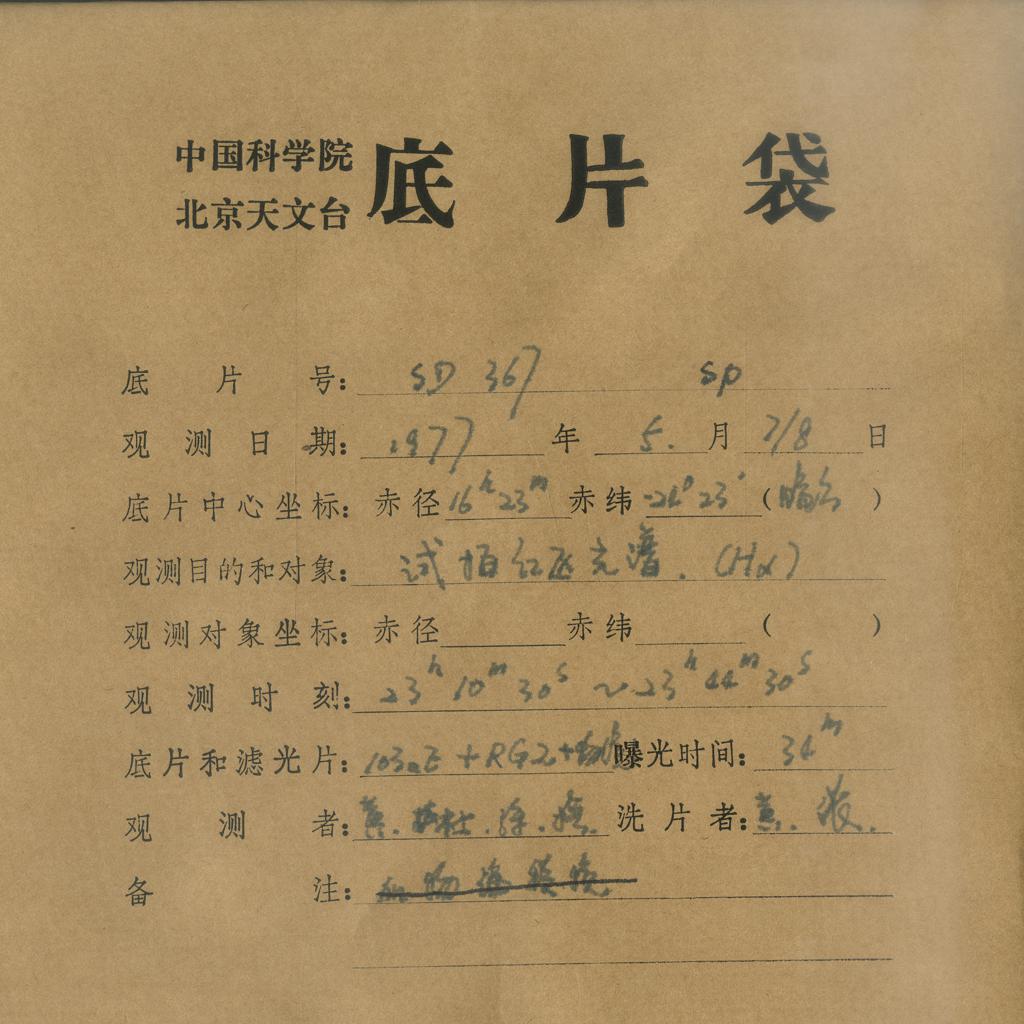 中国科学院
北京天文台
底片袋
底片号: SD 367 Sp
观测日期: 1977 年 5. 月 7/8 日
底片中心坐标: 赤径 16h 23m 赤纬 -26° 23′ ( )
观测目的和对象: 试拍红区光谱. (Hα)
观测对象坐标: 赤径 赤纬 ( )
观测时刻: 23h 10m 30s ~ 23h 44m 30s
底片和滤光片: 103aE + RG2 + 曝光时间: 34m
观测者: 黄. 徐. 洗片者: 黄.
备注: